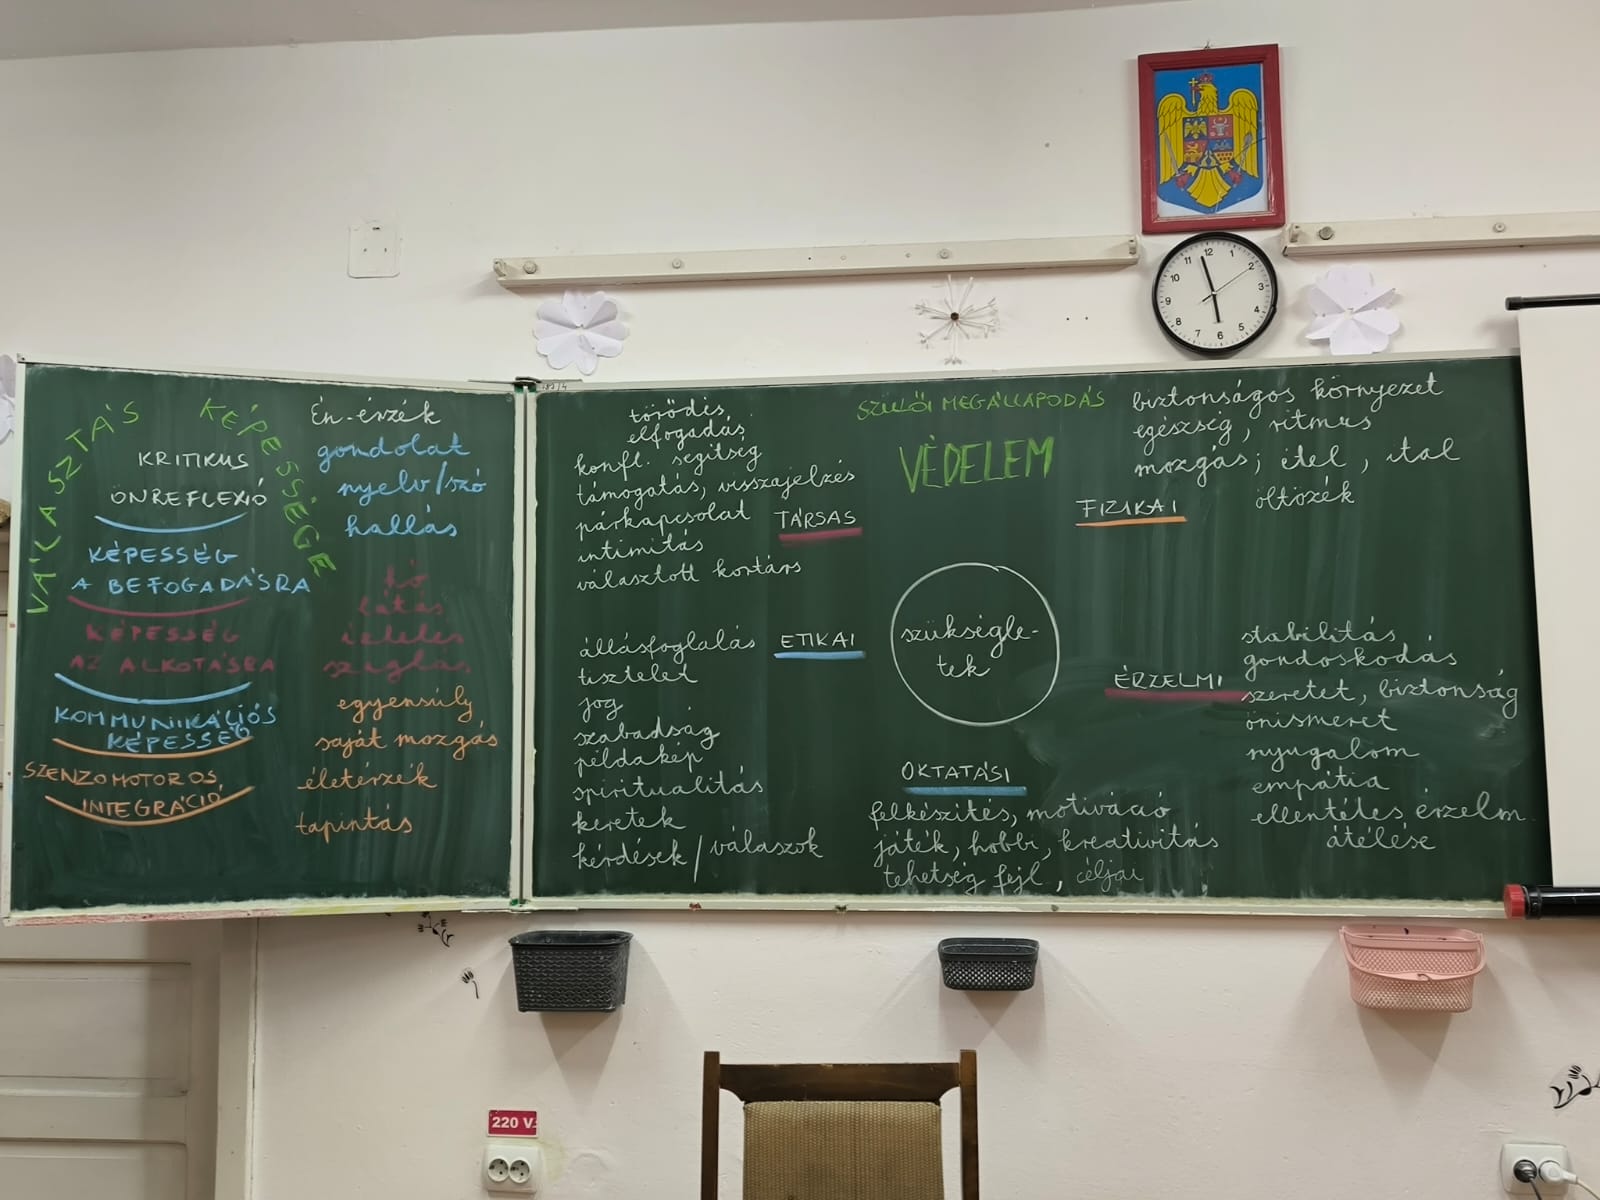 VÁLASZTÁS KÉPESSÉGE
KRITIKUS
ÖNREFLEXIÓ
KÉPESSÉG
A BEFOGADÁSRA
KÉPESSÉG
AZ ALKOTÁSRA
KOMMUNIKÁCIÓS
KÉPESSÉG
SZENZOMOTOROS
INTEGRÁCIÓ
Én-érzék
gondolat
nyelv/szó
hallás
hő
látás
ízlelés
szaglás
egyensúly
saját mozgás
életérzék
tapintás
törődés
elfogadás
konfl. segítség
támogatás, visszajelzés
párkapcsolat
intimitás
választott kortárs
TÁRSAS
SZÜLŐI MEGÁLLAPODÁS
VÉDELEM
biztonságos környezet
egészség, ritmus
mozgás; étel, ital
öltözék
FIZIKAI
szükségle-
tek
állásfoglalás
tisztelet
jog
szabadság
példakép
spiritualitás
keretek
kérdések/válaszok
ETIKAI
OKTATÁSI
felkészítés, motiváció
játék, hobbi, kreativitás
tehetség fejl, céljai
ÉRZELMI
stabilitás,
gondoskodás
szeretet, biztonság
önismeret
nyugalom
empátia
ellentétes érzelm.
átélése
12
1
2
3
4
5
6
7
8
9
10
11
220 V